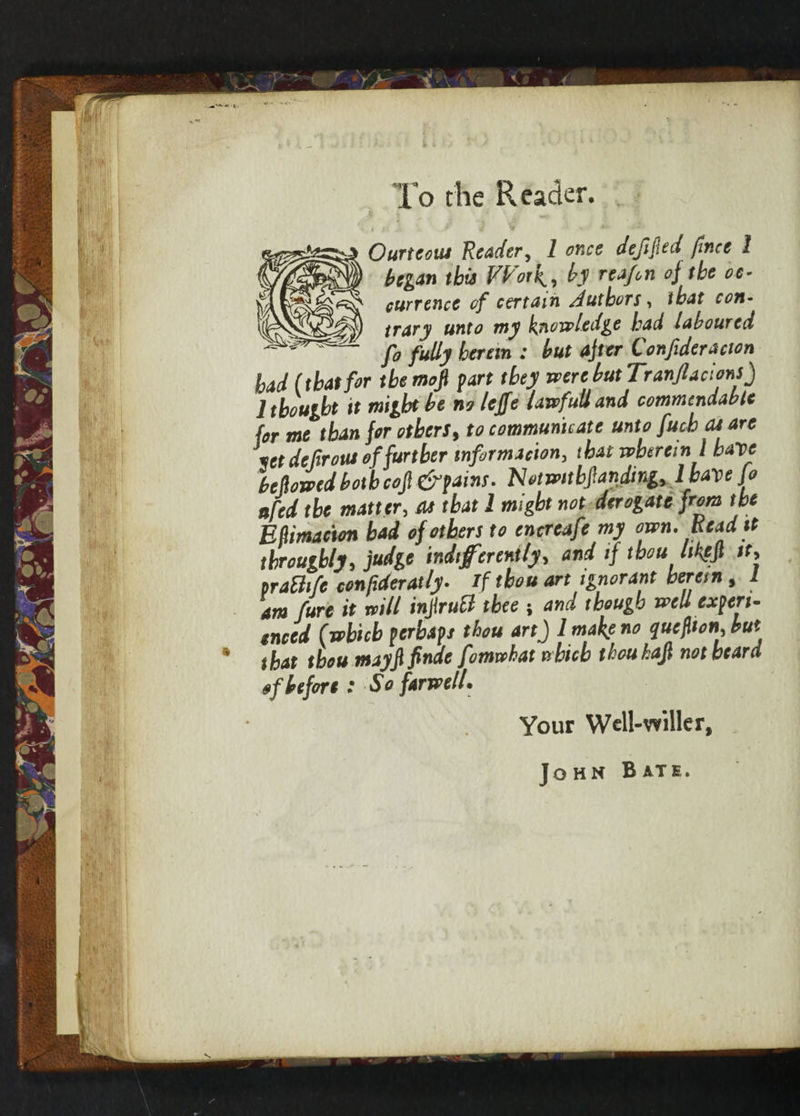 To the Reader.
COurteous Reader, I once desisted since I
began this VVork, by reason of the oc-
currence of certain Authors, that con-
trary unto my knowledge had laboured
so fully herein : but after Consideracion
had (that for the most part they were but Translacions)
I thought it might be no lesse lawfull and commendable
for me than for others, to communicate unto such as are
yet desirous of further informacion, that wherein I have
bestowed both cost & pains. Notwithstanding, I have so
used the matter, as that I might not derogate from the
Estimacion had of others to encrease my own. Read it
throughly, judge indifferently, and if thou likest it,
practise consideratly. If thou art ignorant herein, I
am sure it will instruct thee ; and though well experi-
enced (which perhaps thou art) I make no question, but
that thou mayst finde somwhat which thou hast not heard
of before : So farwell.
Your Well-willer,
JOHN BATE.